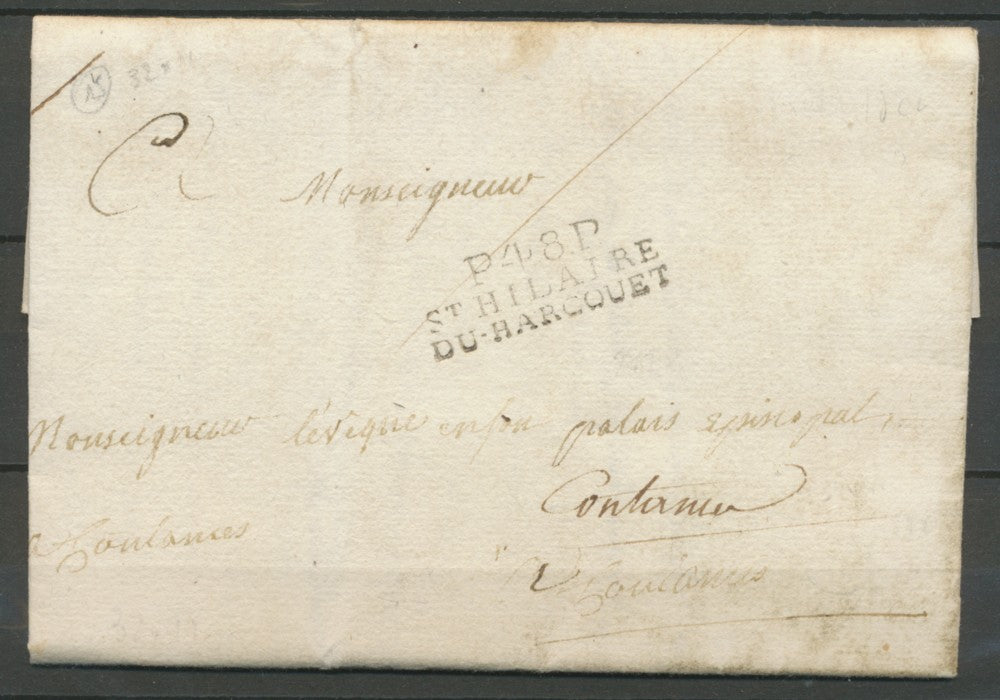 15 32
Monseigneur
P48P
ST HILAIRE
DU-HARCOUET
Monseigneur l'évêque en son palais episcopal
a Coutances
a Coutances